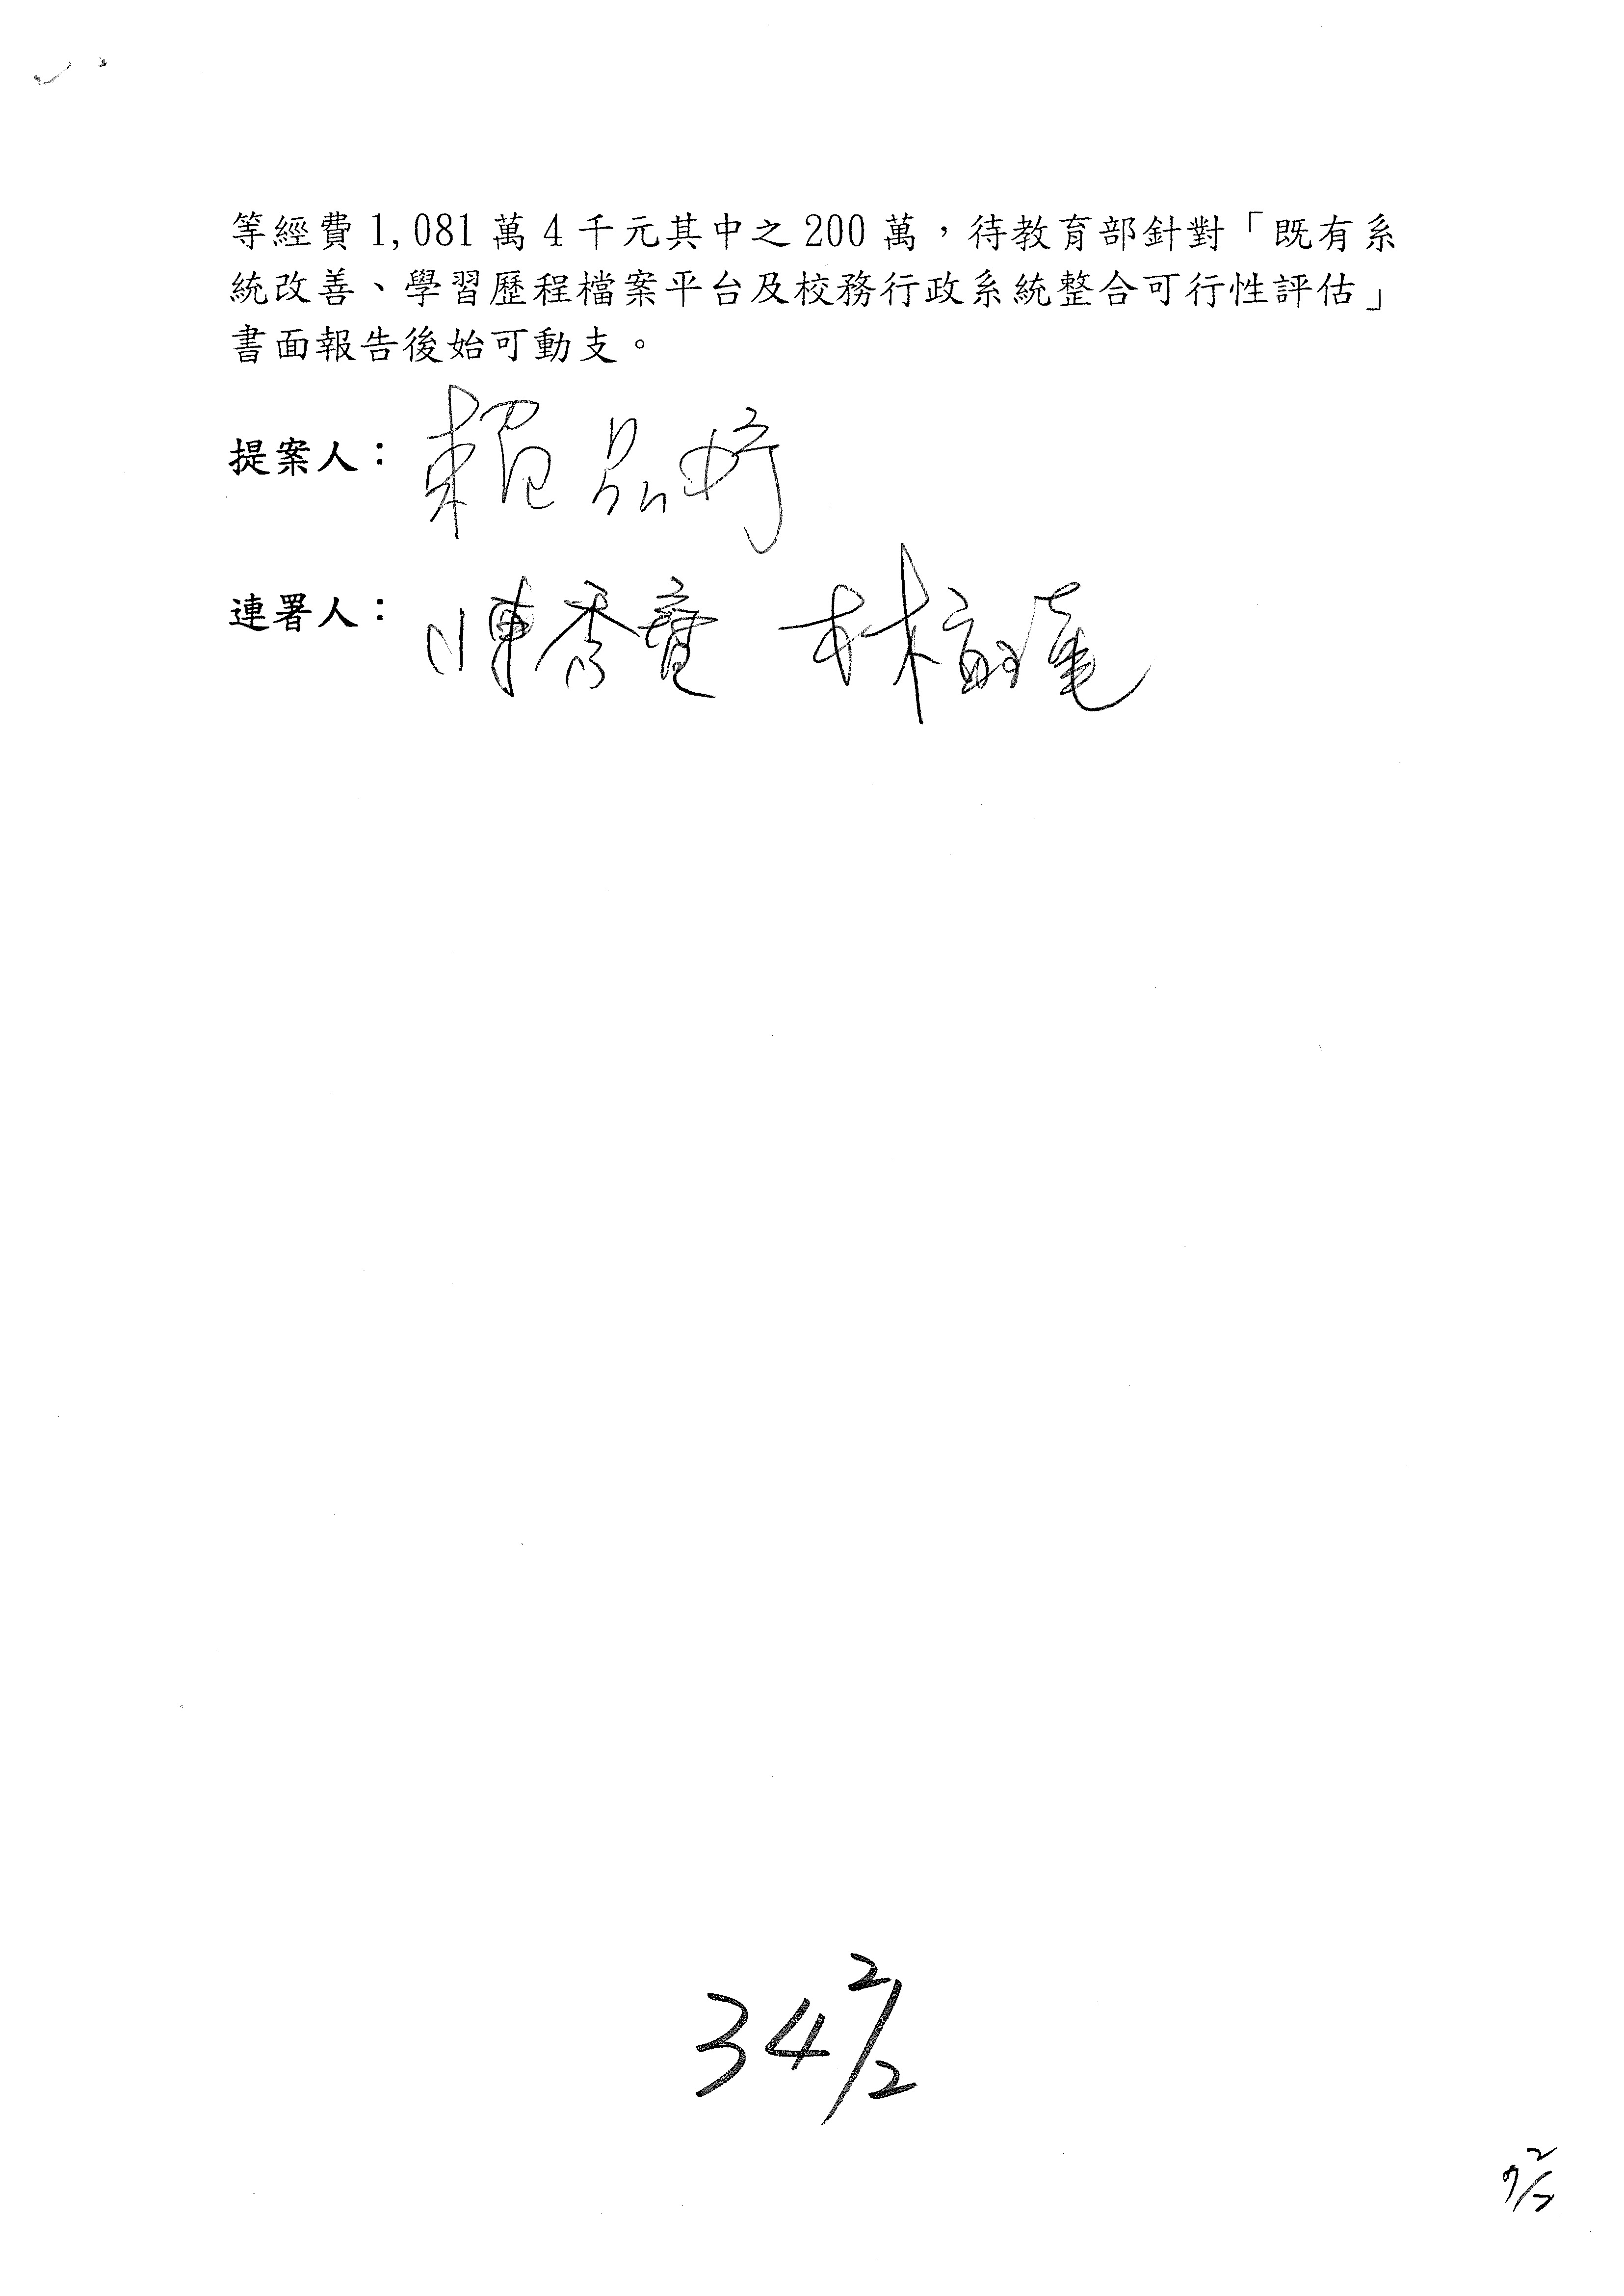 等經費 1,081 萬 4 千元其中之 200 萬，待教育部針對「既有系
統改善、學習歷程檔案平台及校務行政系統整合可行性評估」
書面報告後始可動支。
提案人：賴品妤
連署人：陳秀寶 林
34 2/2